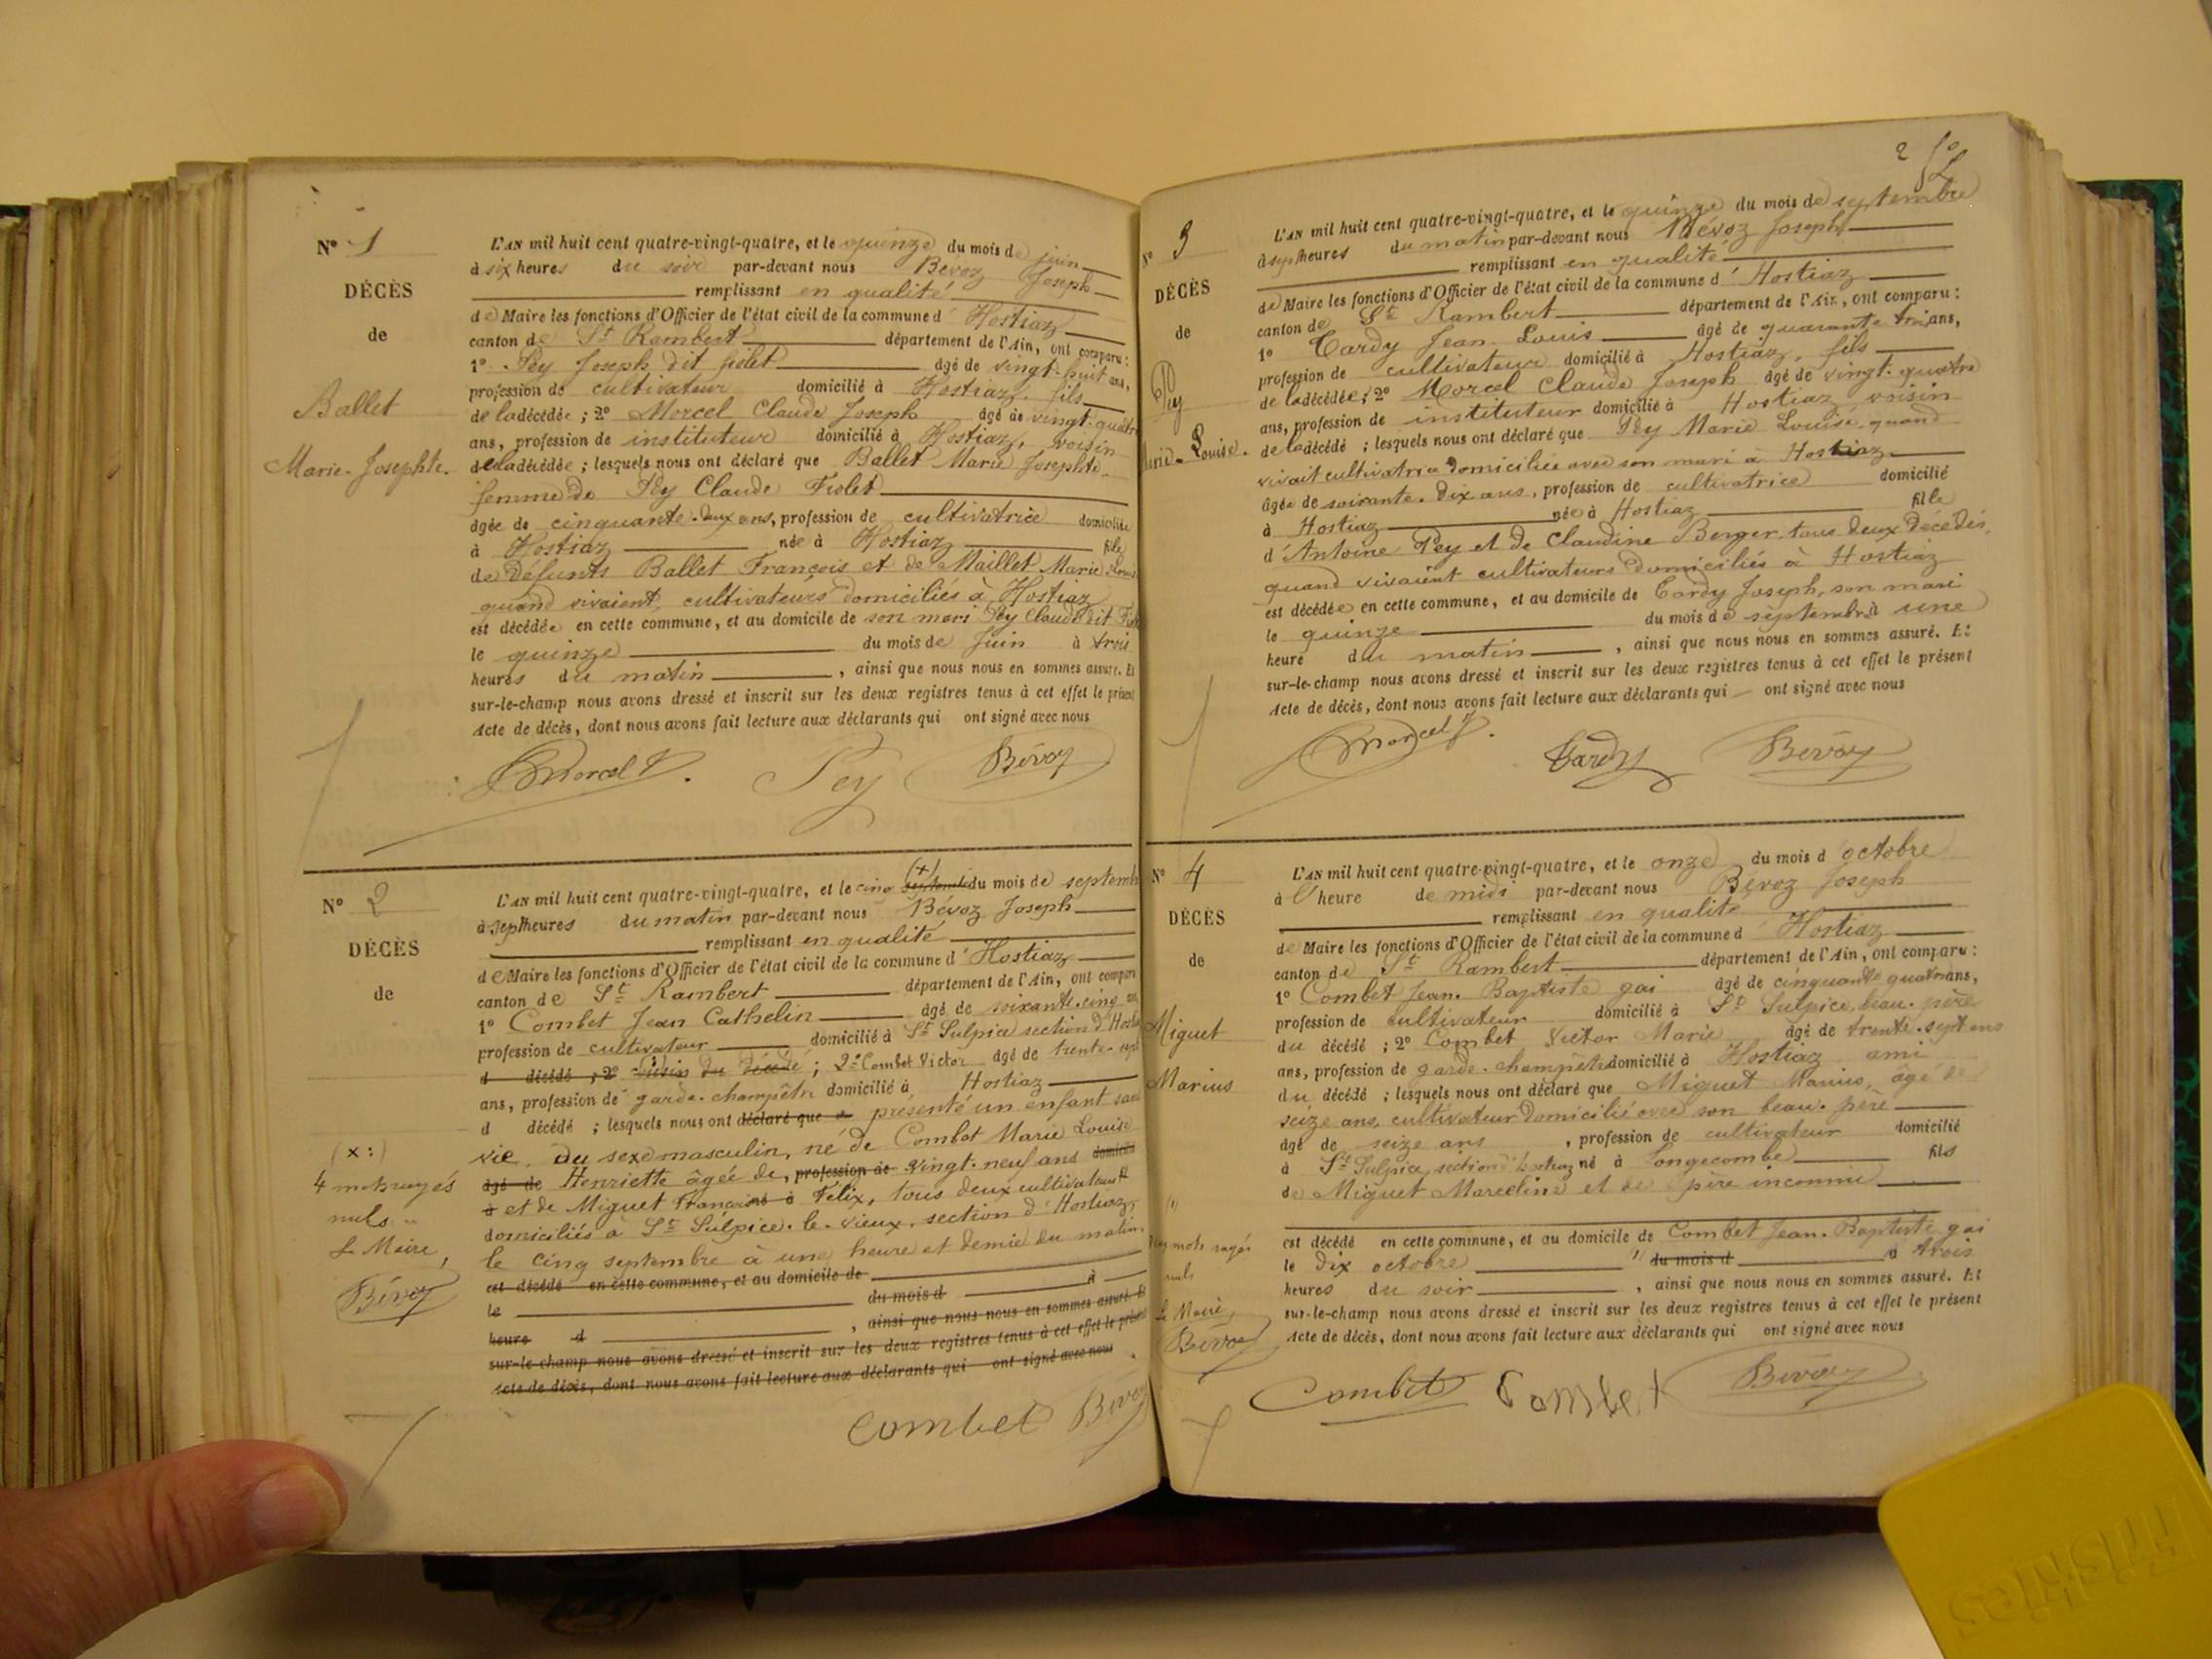 N° 1
DÉCÈS
de
Ballet
Marie-Josephte.
L'AN mil huit cent quatre-vingt-quatre, et le quinze du mois de juin
à six heures du soir par-devant nous Bévoz Joseph
remplissant en qualité
de Maire les fonctions d'Officier de l'état civil de la commune d' Hostiaz
canton de St Rambert département de l'Ain, ont comparu :
1° Pey Joseph dit fiolet âgé de vingt-huit ans,
profession de cultivateur domicilié à Hostiaz, fils
de la décédée ; 2° Morcel Claude Joseph âgé de vingt-quatre
ans, profession de instituteur domicilié à Hostiaz, voisin
de la décédée ; lesquels nous ont déclaré que Ballet Marie Josephte
femme de Pey Claude Fiolet
âgée de cinquante-deux ans, profession de cultivatrice domiciliée
à Hostiaz née à Hostiaz fille
de défunts Ballet François et de Maillet Marie Louise
quand vivaient, cultivateurs domiciliés à Hostiaz
est décédée en cette commune, et au domicile de son mari Pey Claude dit
le quinze du mois de Juin à trois
heures du matin, ainsi que nous nous en sommes assuré. Et
sur-le-champ nous avons dressé et inscrit sur les deux registres tenus à cet effet le présent
Acte de décès, dont nous avons fait lecture aux déclarants qui ont signé avec nous
Morcel J. Pey Bévoz
N° 2
DÉCÈS
de
(x:)
4 mots rayés
nuls
Le Maire,
Bévoz
(+)
L'AN mil huit cent quatre-vingt-quatre, et le cinq septembre du mois de septemb
à sept heures du matin par-devant nous Bévoz Joseph
remplissant en qualité
de Maire les fonctions d'Officier de l'état civil de la commune d' Hostiaz
canton de St Rambert département de l'Ain, ont comparu
1° Combet Jean Cathelin âgé de soixante-cinq ans
profession de cultivateur domicilié à St Sulpice section d'Hostiaz
d décédé ; 2° voisin du décédé ; 2° Combet Victor âgé de trente-sept
ans, profession de garde-champêtre domicilié à Hostiaz
d décédé ; lesquels nous ont déclaré que présenté un enfant sans
vie, du sexe masculin, né de Combet Marie Louise
âgé de Henriette âgée de, profession de vingt-neuf ans domicilié
à et de Miguet François né à Félix, tous deux cultivateurs
domiciliés à St Sulpice-le-vieux, section d'Hostiaz,
le cinq septembre à une heure et demie du matin.
est décédé en cette commune, et au domicile de
le du mois d à
heure d , ainsi que nous nous en sommes assuré. Et
sur-le-champ nous avons dressé et inscrit sur les deux registres tenus à cet effet le présent
Acte de décès, dont nous avons fait lecture aux déclarants qui ont signé avec nous
combet Bévoz
2
N° 3
DÉCÈS
de
Pey
Marie-Louise.
L'AN mil huit cent quatre-vingt-quatre, et le quinze du mois de septembre
à sept heures du matin par-devant nous Bévoz Joseph
remplissant en qualité
de Maire les fonctions d'Officier de l'état civil de la commune d' Hostiaz
canton de St Rambert département de l'Ain, ont comparu :
1° Cardy Jean Louis âgé de quarante trois ans,
profession de cultivateur domicilié à Hostiaz, fils
de la décédée ; 2° Morcel Claude Joseph âgé de vingt-quatre
ans, profession de instituteur domicilié à Hostiaz voisin
de la décédé ; lesquels nous ont déclaré que Pey Marie Louise, quand
vivait cultivatrice domiciliée avec son mari à Hostiaz
âgée de soixante-dix ans, profession de cultivatrice domicilié
à Hostiaz née à Hostiaz fille
d'Antoine Pey et de Claudine Berger tous deux décédés,
quand vivaient cultivateurs domiciliés à Hostiaz
est décédée en cette commune, et au domicile de Cardy Joseph, son mari
le quinze du mois de septembre à une
heure du matin, ainsi que nous nous en sommes assuré. Et
sur-le-champ nous avons dressé et inscrit sur les deux registres tenus à cet effet le présent
Acte de décès, dont nous avons fait lecture aux déclarants qui ont signé avec nous
Morcel J. Cardy Bévoz
N° 4
DÉCÈS
de
Miguet
Marius
(1)
mots rayés
nuls
Le Maire,
Bévoz
L'AN mil huit cent quatre-vingt-quatre, et le onze du mois d octobre
à l'heure de midi par-devant nous Bévoz Joseph
remplissant en qualité
de Maire les fonctions d'Officier de l'état civil de la commune d' Hostiaz
canton de St Rambert département de l'Ain, ont comparu :
1° Combet Jean-Baptiste gai âgé de cinquante quatre ans,
profession de cultivateur domicilié à St Sulpice, beau-père
du décédé ; 2° Combet Victor Marie âgé de trente-sept ans
ans, profession de garde-champêtre domicilié à Hostiaz ami
du décédé ; lesquels nous ont déclaré que Miguet Marius, âgé de
seize ans, cultivateur domicilié avec son beau-père
âgé de seize ans, profession de cultivateur domicilié
à St Sulpice, section d'hostiaz né à Longecombe fils
de Miguet Marceline et de père inconnu
est décédé en cette commune, et au domicile de Combet Jean-Baptiste gai
le dix octobre du mois d à trois
heures du soir, ainsi que nous nous en sommes assuré. Et
sur-le-champ nous avons dressé et inscrit sur les deux registres tenus à cet effet le présent
Acte de décès, dont nous avons fait lecture aux déclarants qui ont signé avec nous
Combet Combet Bévoz
Friskies